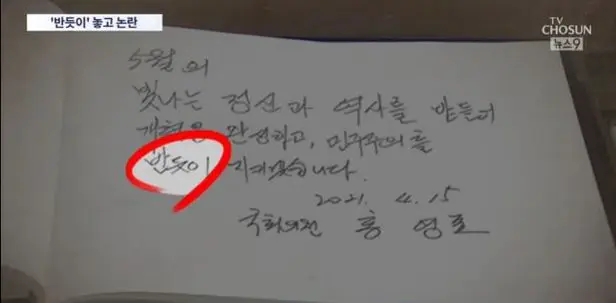 '반듯이' 놓고 논란
TV CHOSUN
뉴스9
5월의
빛나는 정신과 역사를 받들어
개혁을 완성하고, 민주주의를
반듯이 지키겠습니다.
2021. 4. 15
국회의원 홍영표